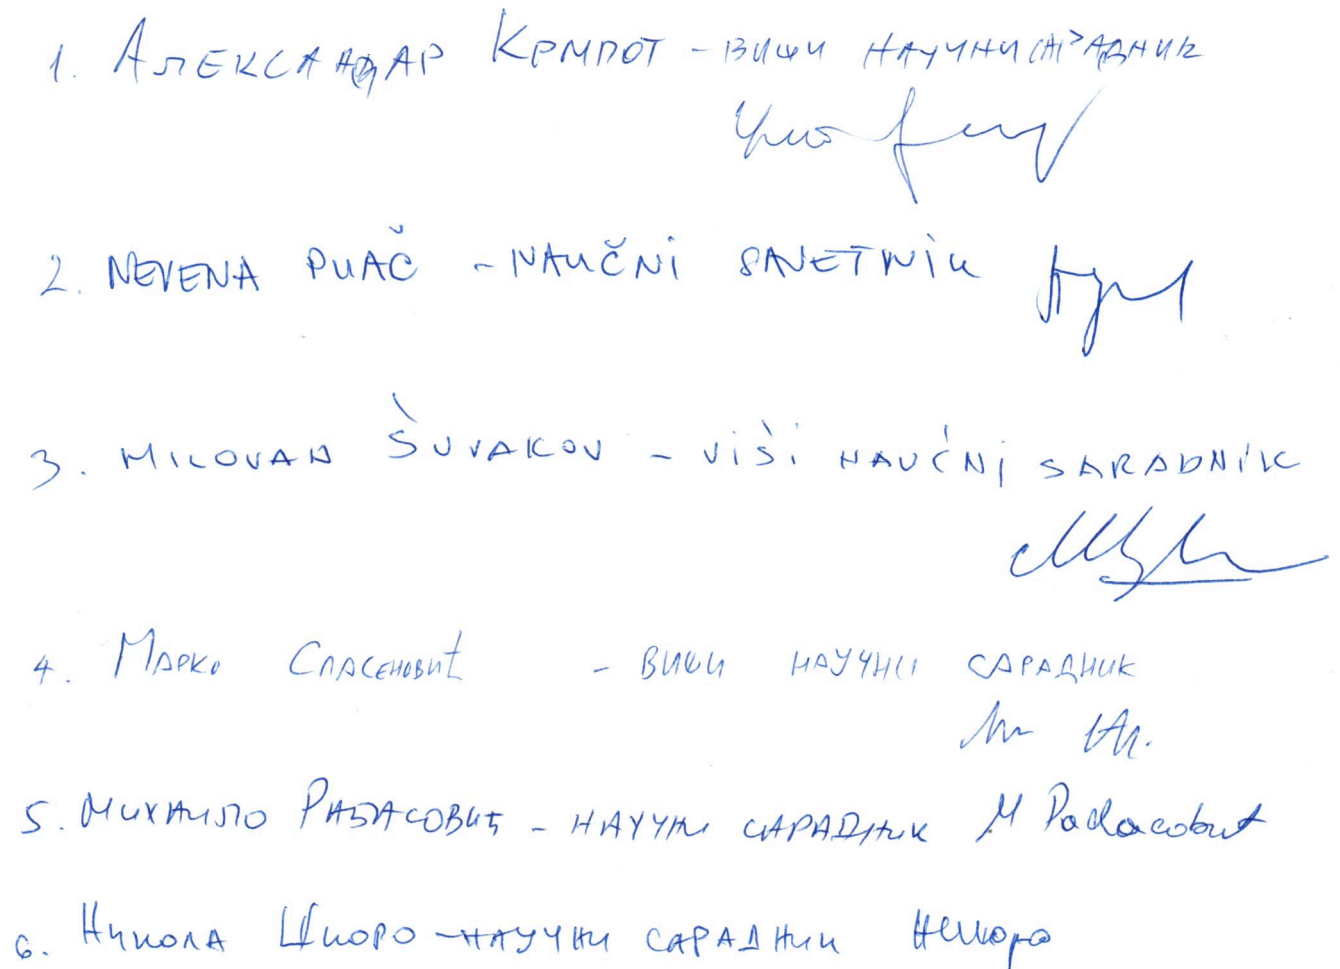 1. АЛЕКСАНДАР КРМПОТ - ВИШИ НАУЧНИ САРАДНИК
2. NEVENA PUAČ - NAUČNI SAVETNIK
3. MILOVAN ŠUVAKOV - VIŠI NAUČNI SARADNIK
4. МАРКО СПАСЕНОВИЋ - ВИШИ НАУЧНИ САРАДНИК
5. МИХАИЛО РАБАСОВИЋ - НАУЧНИ САРАДНИК М Рабасовић
6. НИКОЛА ШКОРО - НАУЧНИ САРАДНИК НШкоро